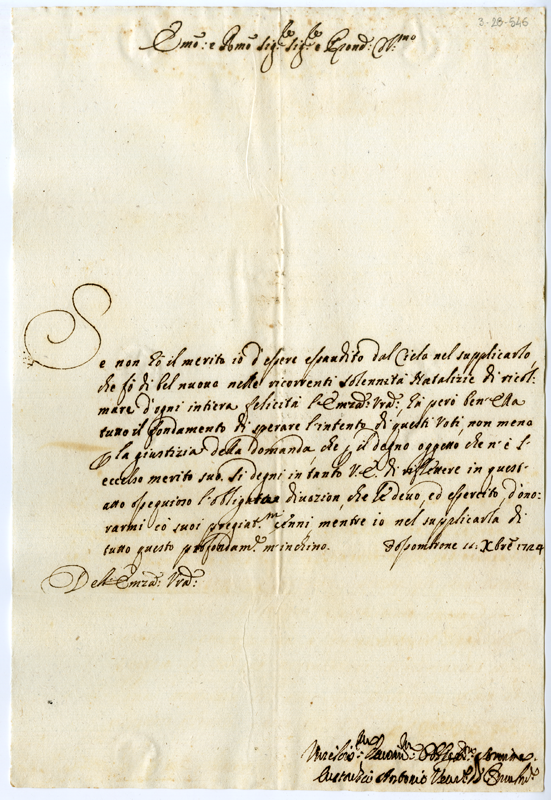 3-28-546
Emo: e Rmo Sig:re Sig:re e Pron: Col:mo
Se non hò il merito io d'essere essaudito dal Cielo nel supplicarlo,
che fò di bel nuovo nelle ricorrenti solennità Natalizie di ricol-
mare d'ogni intiera felicità l'Emza: Vra: hà però ben Ella
tutto il fondamento di sperare l'intento di questi Voti, non meno
p la giustizia della Domanda, che p il degno oggetto che n'è l'
eccelso merito suo. Si degni in tanto V.E. di riflettere in quest'
atto ossequioso l'obligatta divozion che Le devo, ed essercito, d'ono-
rarmi co' suoi pregiat:mi cenni, mentre io nel supplicarla di
tutto questo profondam:e m'inchino. Xbre 1724
Dell'Emza: Vra:
Antonio